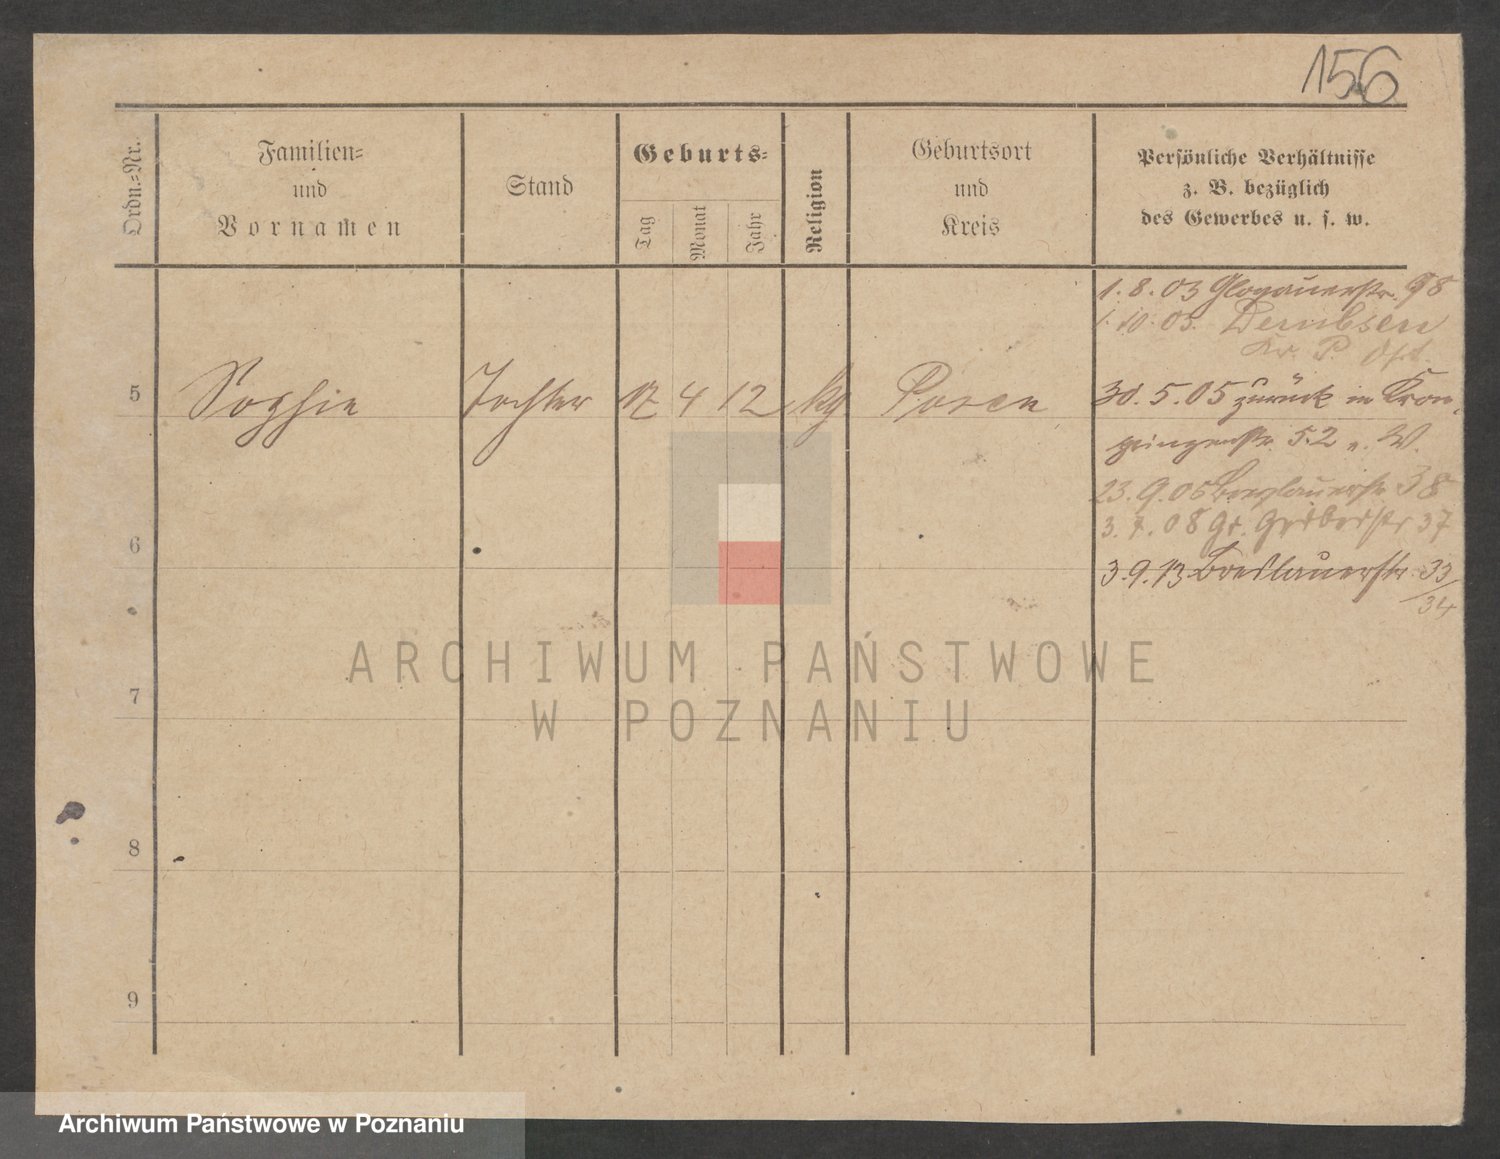 156
Ordn.=Nr.
Familien=
und
Vornamen
Stand
Geburts=
Tag
Monat
Jahr
Religion
Geburtsort
und
Kreis
Persönliche Verhältnisse
z. B. bezüglich
des Gewerbes u. s. w.
1.8.03 Glogauerstr. 98
1.10.03. Dembsen
Kr. P. Ost.
5 Sophie Tochter 4 12 Posen
30.5.05 zurück in Kron-
prinzenstr. 52 n. W.
23.9.05 Breslauerstr 38
3.7.08 Gr. Gerberstr 37
6
3.9.13 Breslauerstr. 33/
34
7
8
9
ARCHIWUM PAŃSTWOWE
W POZNANIU
Archiwum Państwowe w Poznaniu